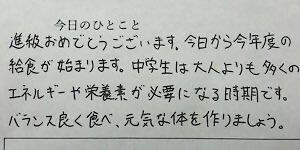 今日のひとこと
進級おめでとうございます。今日から今年度の
給食が始まります。中学生は大人よりも多くの
エネルギーや栄養素が必要になる時期です。
バランス良く食べ、元気な体を作りましょう。